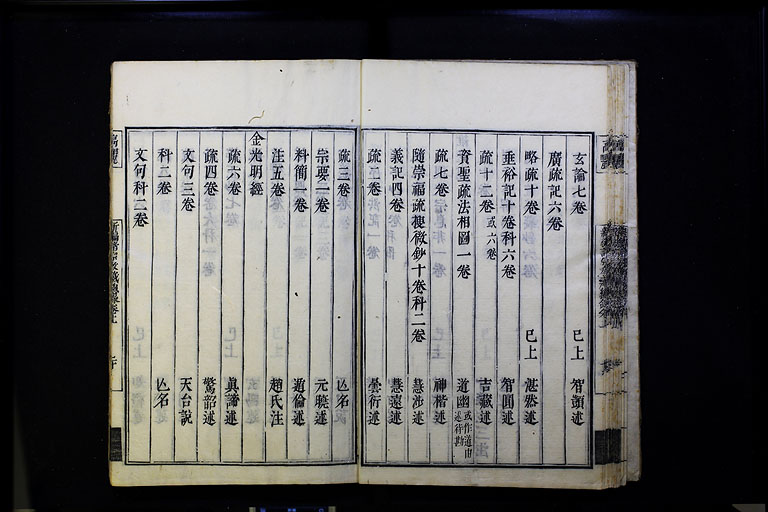 玄論七卷 已上 智顗述
廣疏記六卷
略疏十卷 已上 湛然述
垂裕記十卷科六卷 智圓述
疏十二卷或六卷 吉藏述
資聖疏法相圖一卷 道幽或作道由述待勘
疏七卷 神楷述
隨崇福疏𢮦微鈔十卷科二卷 慧沙述
義記四卷 慧遠述
疏三卷 曇衍述
疏三卷 亾名
宗要一卷 元曉述
料簡一卷 道倫述
注五卷 趙氏注
金光明經
疏六卷 眞諦述
疏四卷 警韶述
文句三卷 天台說
科二卷 亾名
文句科二卷